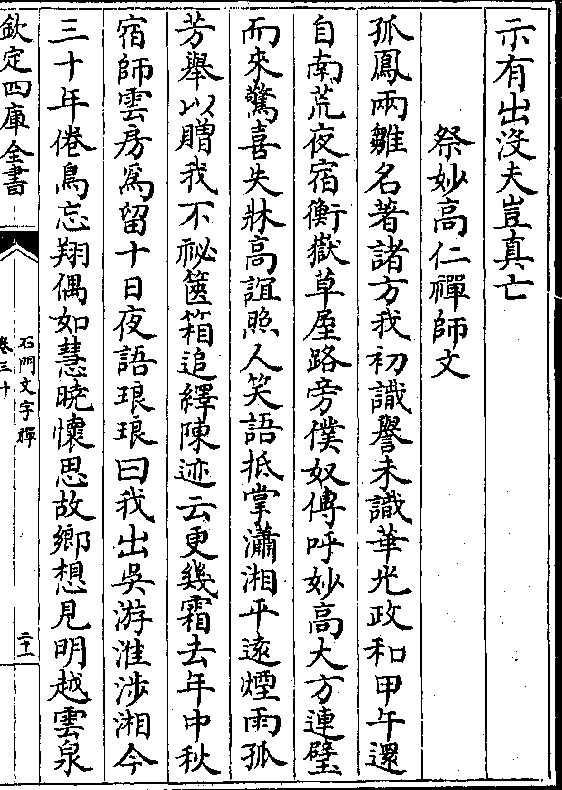 示有出沒夫豈真亡
祭妙高仁禪師文
孤鳳兩雛名著諸方我初識譽未識華光政和甲午還
自南荒夜宿衡嶽草屋路旁僕奴傳呼妙高大方連璧
而來驚喜失牀高誼照人笑語抵掌瀟湘平遠煙雨孤
芳舉以贈我不祕篋箱追繹陳迹云更幾霜去年中秋
宿師雲房爲留十日夜語琅琅曰我出吳游淮涉湘今
三十年倦鳥忘翔偶如慧曉懷思故鄉想見明越雲泉
欽定四庫全書
石門文字禪
卷三十
二十一